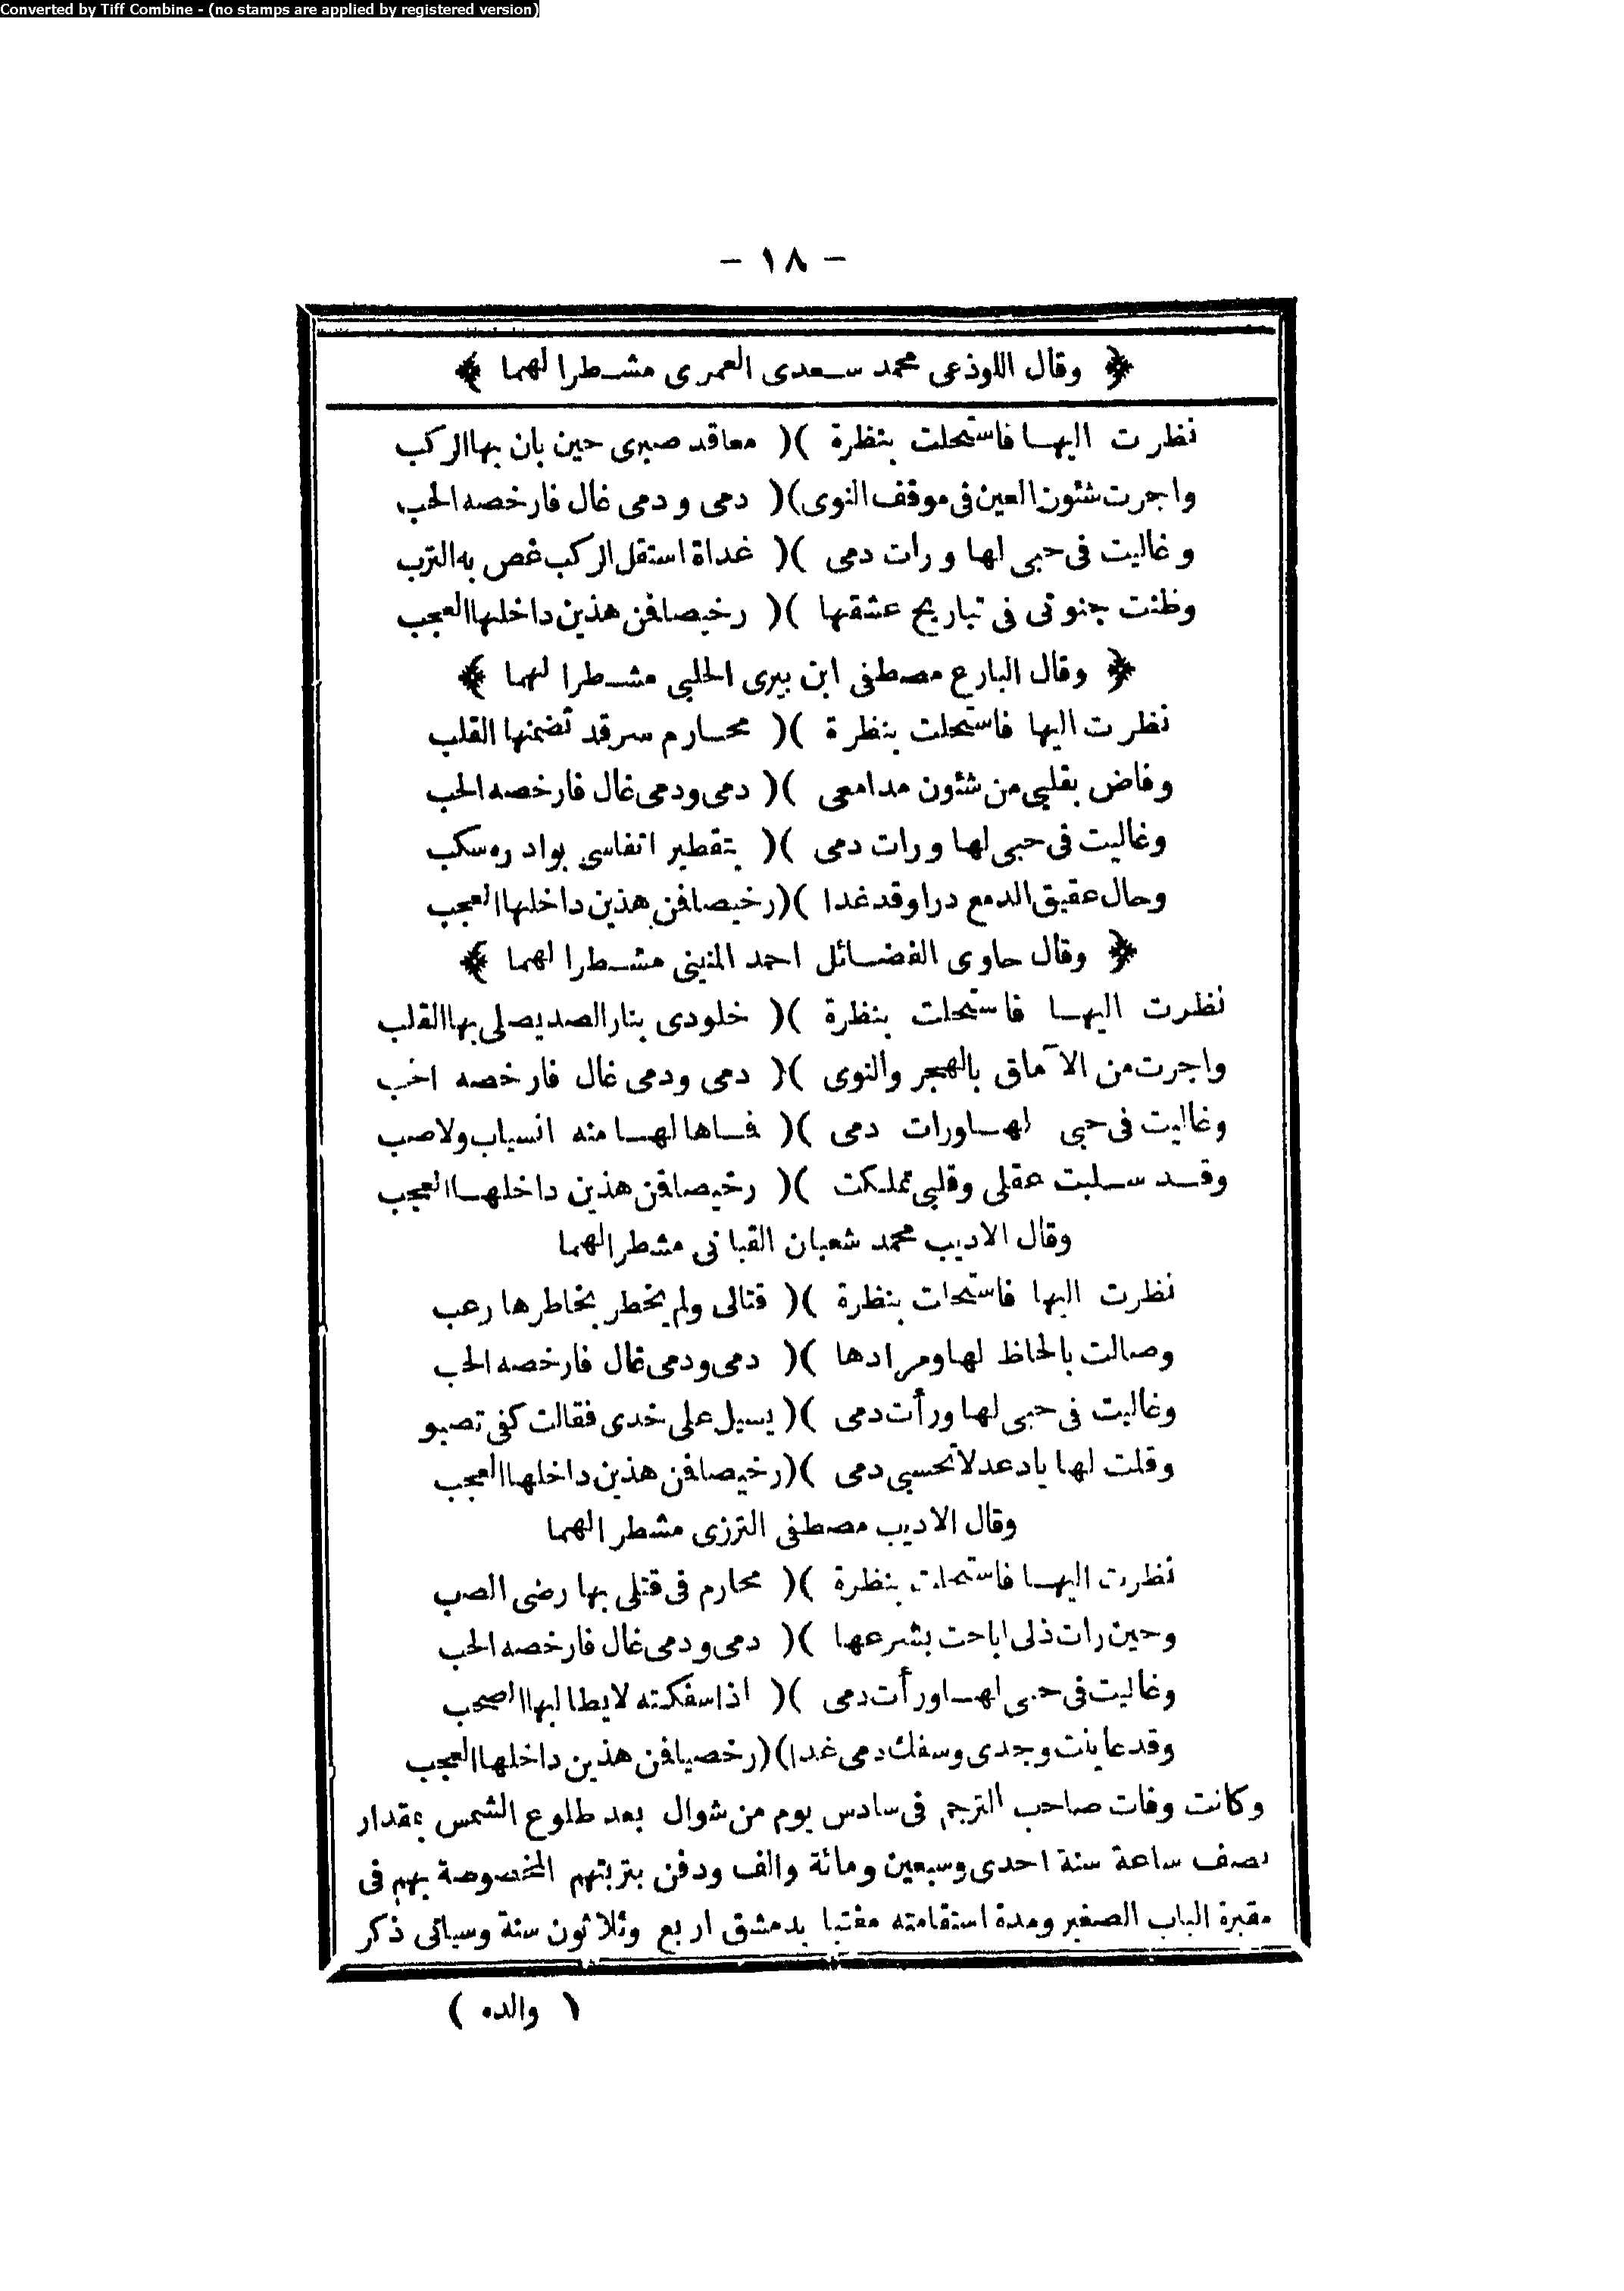 Converted by Tiff Combine - (no stamps are applied by registered version)
- ١٨ -
﴿ وقال اللوذعى محمد سعدى العمرى مشطرا لهما ﴾
نظرت اليها فاستحلت بنظرة )( معاقد صبرى حين بان بها الركب
واجرت شئون العين فى موقف النوى )( دمى ودمى غال فارخصه الحب
وغاليت فى حبى لها ورات دمى )( غداة استقل الركب غص به الترب
وظنت جنونى فى تباريح عشقها )( رخيصا فمن هذين داخلها العجب
﴿ وقال البارع مصطفى ابن بيرى الحلبى مشطرا لهما ﴾
نظرت اليها فاستحلت بنظرة )( محارم سر قد تضمنها القلب
وفاض بقلبى من شئون مدامعى )( دمى ودمى غال فارخصه الحب
وغاليت فى حبى لها ورات دمى )( بتقطير انفاسى بوادره سكب
وحال عقيق الدمع درا وقد غدا )( رخيصا فمن هذين داخلها العجب
﴿ وقال حاوى الفضائل احمد المنينى مشطرا لهما ﴾
نظرت اليها فاستحلت بنظرة )( خلودى بنار الصد يصلى بها القلب
واجرت من الآماق بالهجر والنوى )( دمى ودمى غال فارخصه الحب
وغاليت فى حبى لها ورات دمى )( لها منه انسياب ولا صب
وقد سلبت عقلى وقلبى تملكت )( رخيصا فمن هذين داخلها العجب
وقال الاديب محمد شعبان القبانى مشطرا لهما
نظرت اليها فاستحلت بنظرة )( قتالى ولم يخطر بخاطرها رعب
وصالت بالحاظ لها ومرادها )( دمى ودمى غال فارخصه الحب
وغاليت فى حبى لها ورأت دمى )( يسيل على خدى فقالت كفى تصبو
وقلت لها يا دعد لا تحسبى دمى )( رخيصا فمن هذين داخلها العجب
وقال الاديب مصطفى الترزى مشطرا لهما
نظرت اليها فاستحلت بنظرة )( محارم فى قتلى بها رضى الصب
وحين رات ذلى اباحت بشرعها )( دمى ودمى غال فارخصه الحب
وغاليت فى حبى لها ورأت دمى )( اذا سفكته لا يطالبها الصحب
وقد عاينت وجدى وسفك دمى غدا )( رخصيا فمن هذين داخلها العجب
وكانت وفات صاحب الترجم فى سادس يوم من شوال بعد طلوع الشمس بمقدار
نصف ساعة سنة احدى وسبعين ومائة والف ودفن بتربتهم المخصوصة بهم فى
مقبرة الباب الصغير ومدة استقامته مفتيا بدمشق اربع وثلاثون سنة وسياتى ذكر
( والده )